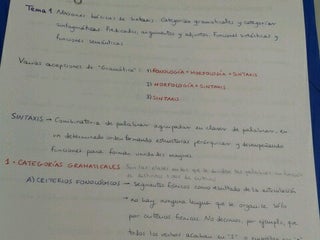 Tema 1 Nociones básicas de sintaxis. Categorías gramaticales y categorías
sintagmáticas. Predicados, argumentos y adjuntos. Funciones sintácticas y
funciones semánticas
Varias acepciones de "Gramática": 1) FONOLOGÍA + MORFOLOGÍA + SINTAXIS
2) MORFOLOGÍA + SINTAXIS
3) SINTAXIS
SINTAXIS → Combinatoria de palabras agrupadas en clases de palabras, en
un determinado orden formando estructuras jerárquicas y desempeñando
funciones para formar unidades mayores
1 - CATEGORÍAS GRAMATICALES Son las clases en las que se dividen las palabras en función
de distintos tipos de criterios
A) CRITERIOS FONOLÓGICOS → Segmentos fónicos como resultado de la articulación
→ no hay ninguna lengua que se organice sólo
por criterios fónicos. No decimos, por ejemplo, que
todos los verbos acaban en